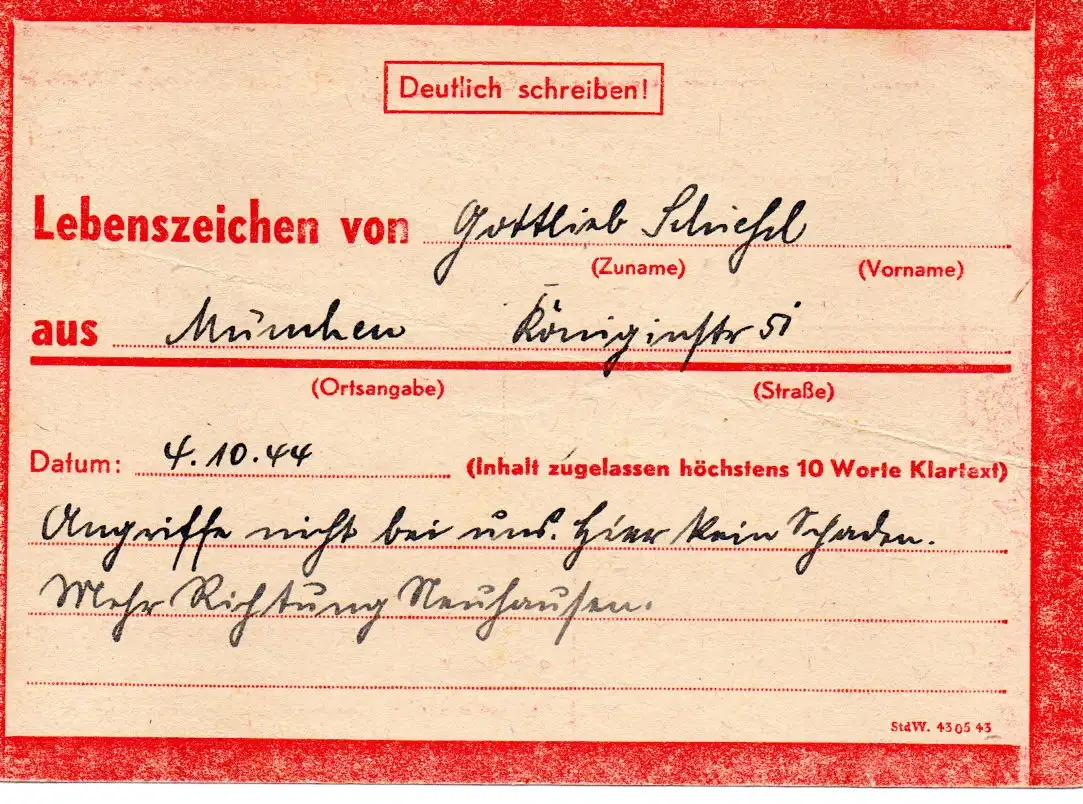 Deutlich schreiben!
Lebenszeichen von Gottlieb
(Zuname) (Vorname)
aus München Königinstr 51
(Ortsangabe) (Straße)
Datum: 4.10.44 (Inhalt zugelassen höchstens 10 Worte Klartext)
Angriffe nicht bei uns. Hier kein Schaden.
Mehr Richtung Neuhausen.
StdW. 43 05 43